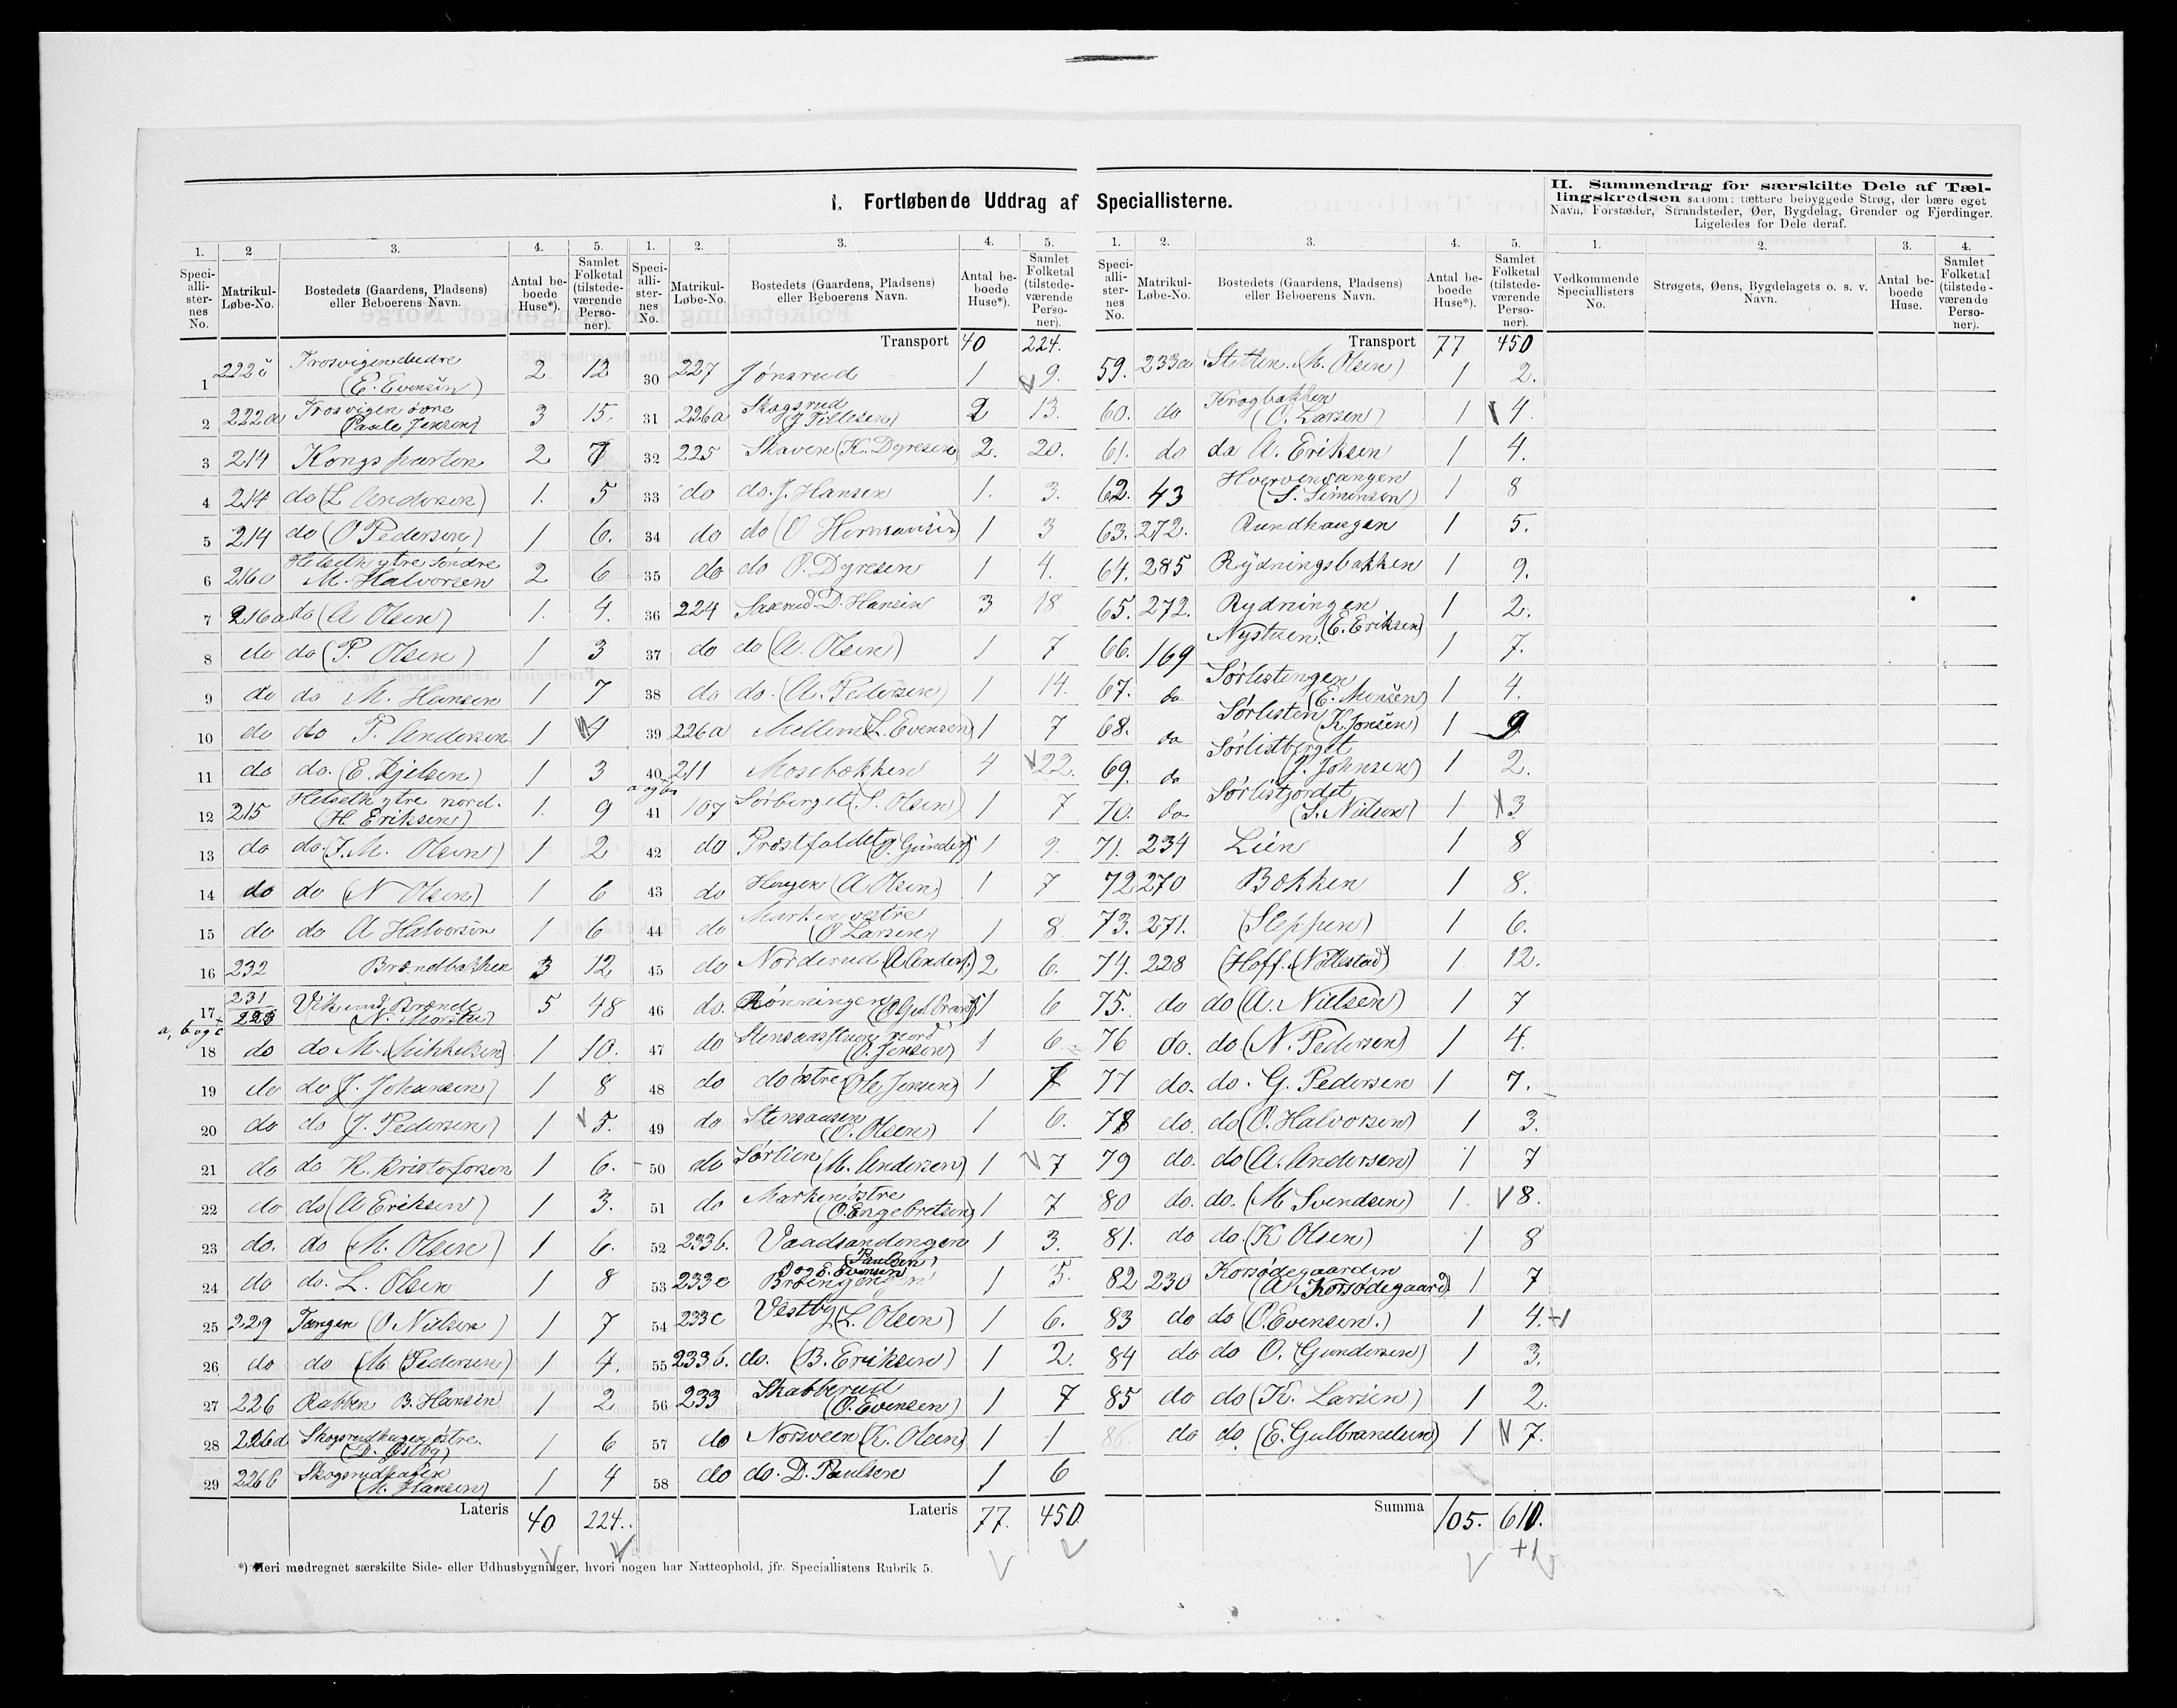 I. Fortløbende Uddrag af Speciallisterne.
II. Sammendrag for særskilte Dele af Tæl-
lingskredsen saasom: tættere bebyggede Strøg, der bære eget
Navn, Forstæder, Strandsteder, Øer, Bygdelag, Grender og Fjerdinger.
Ligeledes for Dele deraf.
1. 2 3. 4. 5.
Speci-alli-ster-nes No. Matrikul-Løbe-No. Bostedets (Gaardens, Pladsens) eller Beboerens Navn. Antal be-boede Huse*). Samlet Folketal (tilstede-værende Perso-ner).
1 222 Trosvigen (E. Evensen) 2 12
2 222a Trosvigen øvre (Paule Jensen) 3 15.
3 214 Kongsparten 2 7
4 214 do (L. Andersen) 1. 5
5 214 do (O Pedersen) 1 6.
6 216 Helseth ytre søndre M. Halvorsen 2 6
7 216a do (A Olsen) 1. 4.
8 do do (P. Olsen) 1 3
9 do do M. Hansen 1 7
10 do do P. Andersen 1 4
11 do do. (E. Kjelsen) 1 3
12 215 Helseth ytre nord. (H. Eriksen) 1. 9
13 do do. (J. M. Olsen) 1 2
14 do do (N Olsen) 1 6
15 do do A Halvorsen 1 6
16 232 Brændbakken 3 12
17 231 223 a, b og c Vik 5 48
18 do do M. Mikkelsen) 1 10.
19 do do J. Johansen) 1 8
20 do do (J. Pedersen) 1 5.
21 do do K. Kristofersen 1 6.
22 do do (A Eriksen) 1 3.
23 do. do (M. Olsen) 1 6.
24 do do. L. Olsen 1 8
25 229 Tangen (O Nielsen) 1 7
26 do do (M. Pedersen) 1 4.
27 226 Rabben B. Hansen 1 2
28 226d Skogsrudhagen østre. (D. Østby) 1 6
29 226b Skogsrudhagen (M. Hansen) 1 4
Lateris 40 224.
1. 2. 3. 4. 5.
Speci-alli-ster-nes No. Matrikul-Løbe-No. Bostedets (Gaardens, Pladsens) eller Beboerens Navn. Antal be-boede Huse*). Samlet Folketal (tilstede-værende Perso-ner).
Transport 40 224.
30 227 Jønsrud 1 9.
31 226a Skogsrud (J Tillesen) 2 13.
32 225 Skaven (K. Dyresen) 2. 20.
33 do do. J. Hansen 1. 3.
34 do do (O Hermansen) 1 3
35 do do O. Dyresen 1 4.
36 224 Saxerud D. Hansen 3 18
37 do do (A. Olsen) 1 7
38 do do. (A. Pedersen) 1 14.
39 226a Mellem (L. Evensen) 1 7
40 211 a og b Mosebakken 4 22.
41 107 Sørberget (S. Olsen) 1 7
42 do Præstfaldet (J. Gunders) 1 9.
43 do Haugen (A Olsen) 1 7
44 do Marken vestre (O Larsen) 1 8.
45 do Norderud (A Anders.) 2 6.
46 do. Rønningen 1 6
47 do Stensaasstuen nord (O. Jensen) 1 6.
48 do do østre (Ole Jensen) 1 7
49 do Stensaasen (O. Olsen) 1 6.
50 do Sørlien (M. Andersen) 1 7
51 do Marken østre (O. Engebretsen) 1 7
52 233b. Vaadsandengen (Paulsen) 1 3.
53 233e Brøengen og E. Evensen 1 5.
54 233c Vestby (L. Olsen) 1 6.
55 233b. do. (B. Eriksen) 1 2.
56 233 Skabberud (O. Evensen) 1 7
57 do Norsveen (K. Olsen) 1 1
58 do do. D. Paulsen 1 6
Lateris 77. 450
1. 2. 3. 4. 5.
Speci-alli-ster-nes No. Matrikul-Løbe-No. Bostedets (Gaardens, Pladsens) eller Beboerens Navn. Antal be-boede Huse*). Samlet Folketal (tilstede-værende Perso-ner).
Transport 77 450
59. 233a Stetten. (M. Olsen) 1 2.
60. do Krogbakken (O. Larsen) 1 4.
61. do do A. Eriksen 1 4.
62. 43 (S. Simensen) 1 8
63. 272. Rundhaugen 1 5.
64. 285 Rydningsbakken 1 9.
65. 272. Rydningen 1 2.
66. 169 Nystuen. (E. Eriksen) 1 7.
67. do Sørlistengen (E. Monsen) 1 4.
68. do Sørlisten (K. Jonsen) 1 9
69. do Sørlistberget (J. Johnsen) 1 2.
70. do Sørlistjordet (S. Nielsen) 1 3
71. 234 Lien 1 8
72 270 Bakken 1 8.
73. 271. (Steppen) 1 6.
74. 228 Hoff. (Nøllestad) 1 12.
75. do do (A. Nielsen) 1 7
76 do. do (N. Pedersen) 1 4.
77 do. do. G. Pedersen 1 7.
78 do. do (O. Halvorsen) 1 3.
79 do. do (A. Andersen) 1 7
80 do. do. (M Svendsen) 1. 8.
81. do do. (K Olsen) 1 8
82 230 Korsødegaarden (A. Korsødegaard) 1 7
83 do do (O. Evensen.) 1 4. +1
84 do do O. (Gundersen) 1 3.
85 do do (K. Larsen) 1 2.
86. do do (E. Gulbrandsen) 1 7.
Summa 105. 610.
+1
1. 2. 3. 4.
Vedkommende Speciallisters No. Strøgets, Øens, Bygdelagets o. s. v. Navn. Antal be-boede Huse. Samlet Folketal (tilstede-værende Perso-ner).
*) Heri medregnet særskilte Side- eller Udhusbygninger, hvori nogen har Natteophold, jfr. Speciallistens Rubrik 5.